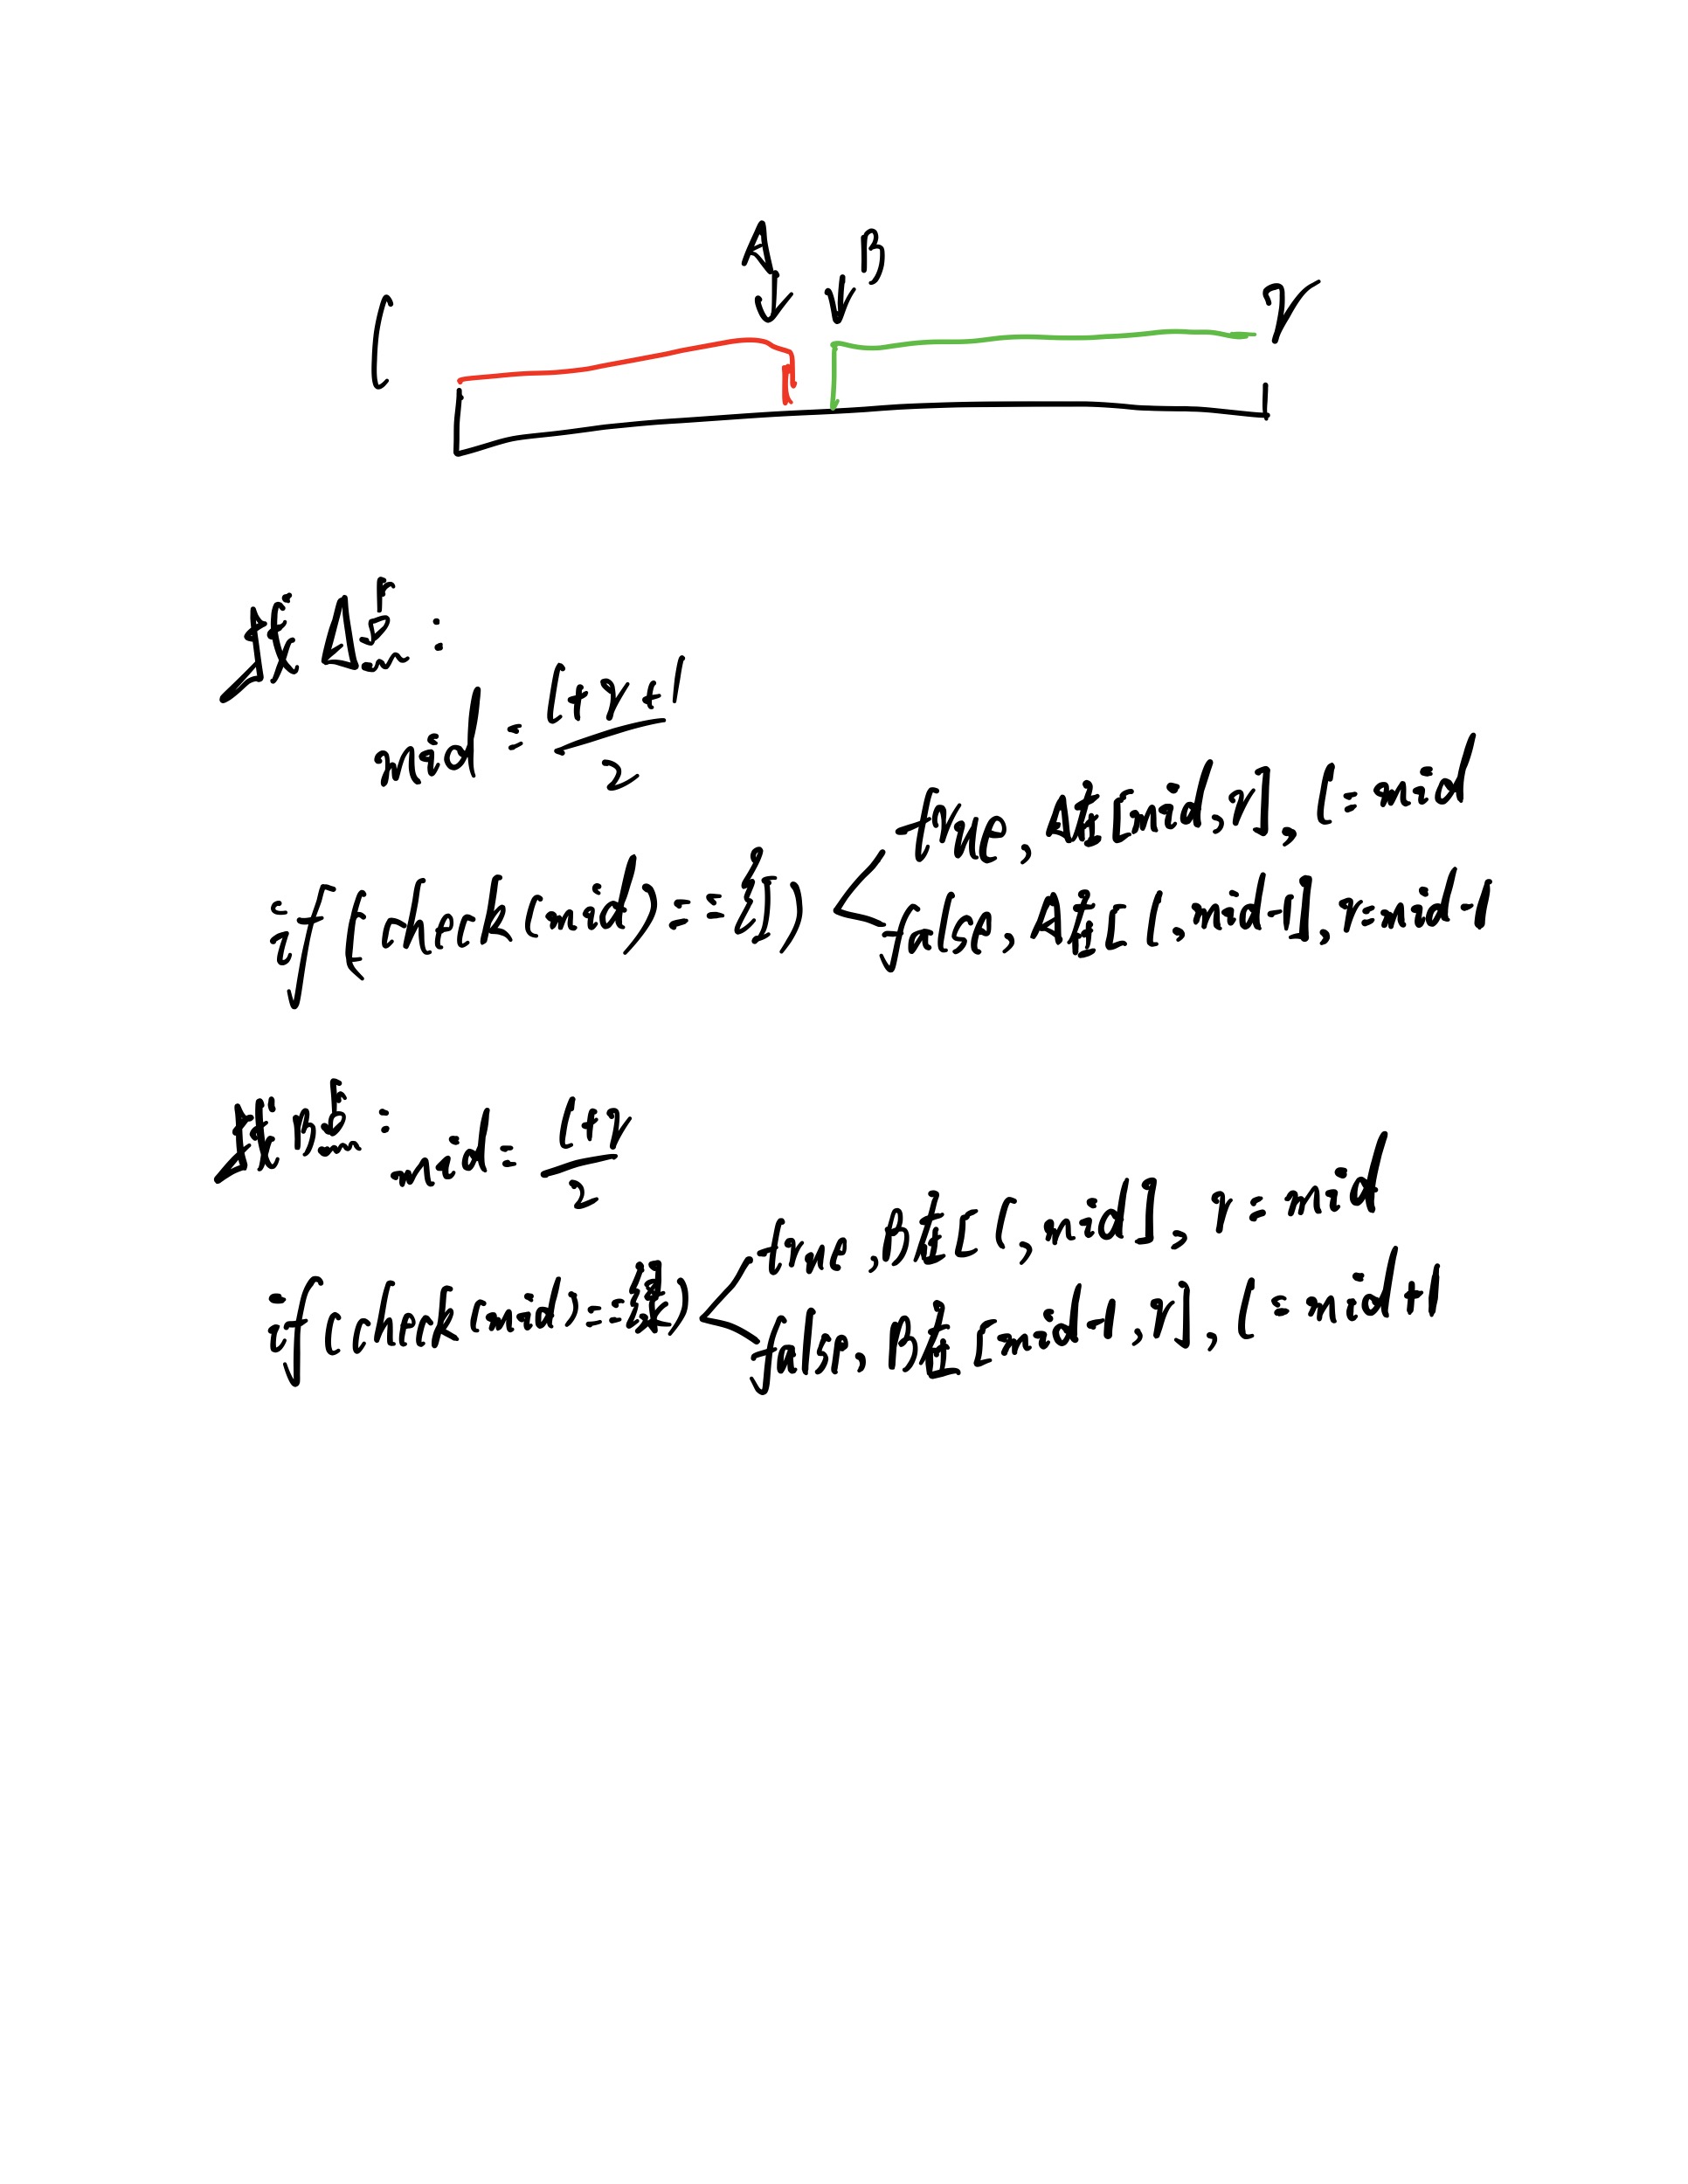 A B
l r
找A点:
mid = (l+r+1)/2
if (check(mid) == 红) true, A在[mid,r], l = mid
false, A在[l,mid-1], r=mid-1
找B点:
mid = (l+r)/2
if (check(mid)==绿) true, B在[l,mid], r = mid
false, B在[mid+1,r], l = mid+1